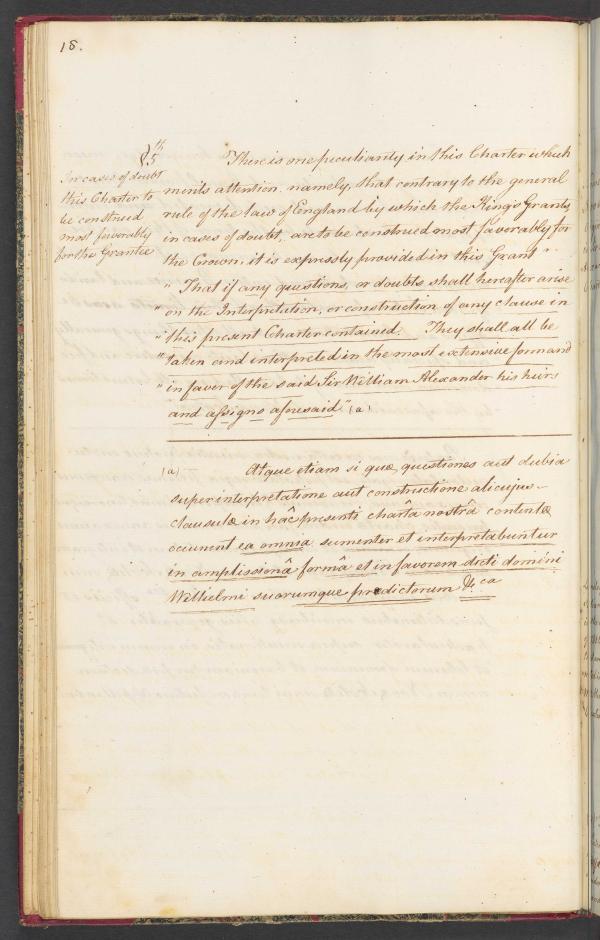 18.
§ 5th
In cases of doubt
this Charter to
be construed
most favorably
for the Grantee
There is one peculiarity in this Charter which
merits attention namely, that contrary to the general
rule of the law of England by which the King's Grants,
in cases of doubt, are to be construed most favorably for
the Crown, it is expressly provided in this Grant
" That if any questions, or doubts shall hereafter arise
" on the Interpretation, or construction of any clause in
" this present Charter contained. They shall all be
" taken and interpreted in the most extensive form and
" in favor of the said Sir William Alexander his heirs
and assigns aforesaid" (a)
(a) Atque etiam si quæ, questiones aut dubia
super interpretatione aut constructione alicujus
clausulæ in hâc presenti chartâ nostrâ contentæ
occurrent ea omnia sumenter et interpretabuntur
in amplissimâ formâ et in favorem dicti domini
Willielmi suorumque predictorum &ca